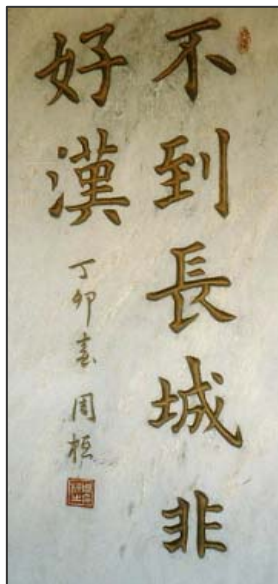 不到長城非
好漢
丁卯春 周桓